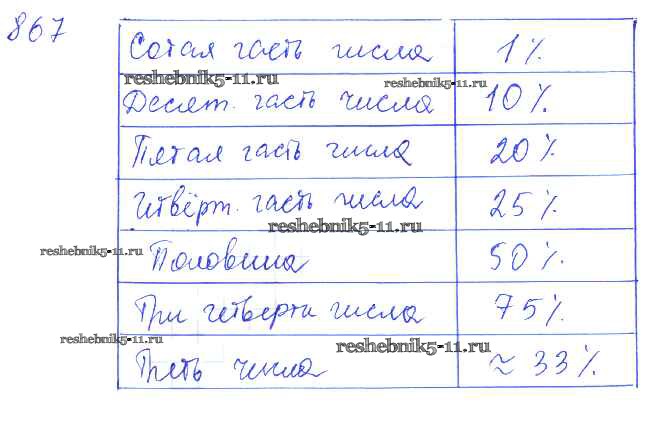 867
Сотая часть числа 1%
reshebnik5-11.ru
reshebnik5-11.ru
Десят. часть числа 10%
Пятая часть числа 20%
Четвёрт. часть числа 25%
reshebnik5-11.ru
reshebnik5-11.ru
Половина 50%
Три четверти числа 75%
reshebnik5-11.ru
reshebnik5-11.ru
Треть числа ≈ 33%